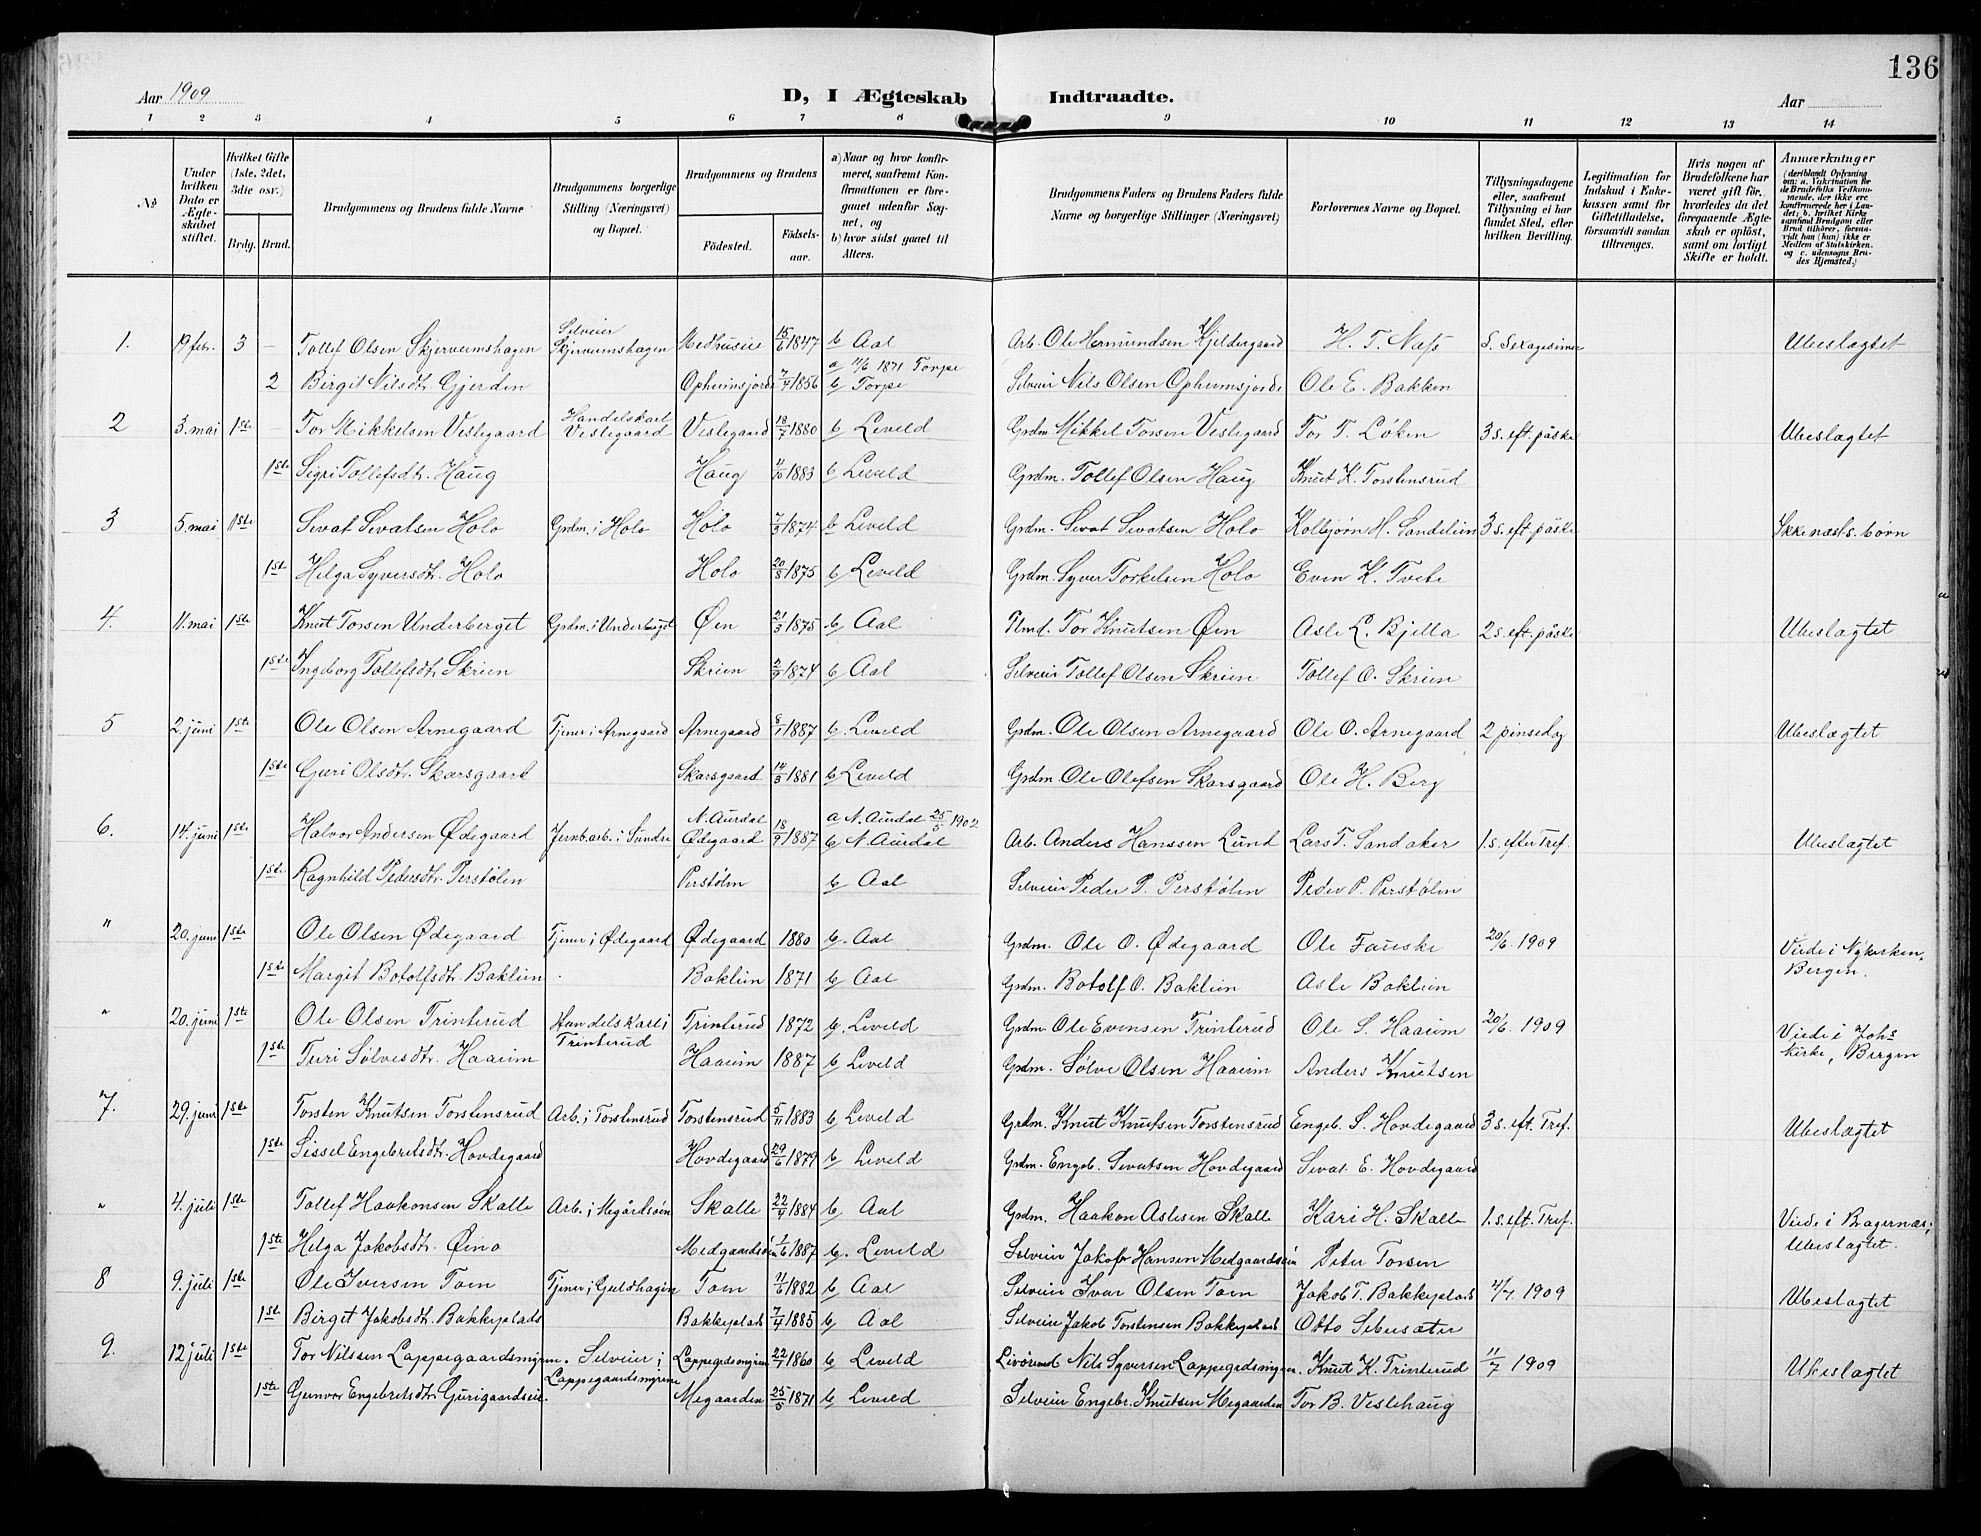 136
Aar 1909
D, I Ægteskab Indtraadte.
Aar
1 2 3 4 5 6 7 8 9 10 11 12 13 14
No
Under hvilken Dato er Ægteskabet stiftet.
Hvilket Gifte (1ste, 2det, 3die osv.)
Brdg. Brud.
Brudgommens og Brudens fulde Navne
Brudgommens borgerlige Stilling (Næringsvei) og Bopæl.
Brudgommens og Brudens
Fødested.
Fødselsaar.
a) Naar og hvor konfirmeret, saafremt Konfirmationen er foregaaet udenfor Sognet, og
b) hvor sidst gaaet til Alters.
Brudgommens Faders og Brudens Faders fulde Navne og borgerlige Stillinger (Næringsvei)
Forlovernes Navne og Bopæl.
Tillysningsdagene eller, saafremt Tillysning ei har fundet Sted, efter hvilken Bevilling.
Legitimation for Indskud i Enkekassen samt for Giftetilladelse, forsaavidt saadan tiltrænges.
Hvis nogen af Brudefolkene har været gift før, hvorledes da det foregaaende Ægteskab er opløst, samt om lovligt Skifte er holdt.
Anmærkninger (deriblandt Oplysning om: a. Vakcination for de Brudefolks Vedkommende, der ikke ere konfirmerede her i Landet; b. hvilket Kirkesamfund Brudgom eller Brud tilhører, forsaavidt han (hun) ikke er Medlem af Statskirken. og c. udensogns Brudes Hjemsted.)
1. 19 febr. 3 - Tollef Olsen Skjerveimshagen Selveier Skjerveimshagen Medhusie 15/6 1847 b Aal Arb. Ole Hermundsen Kjeldergaard H. T. Næss S. Sexagesimæ Ubeslægtet
2 Birgit Nilsdtr. Gjerden Opheimsjorde 7/7 1856 a 11/6 1871 Torpe b Torpe Selveier Nils Olsen Opheimsjorde Ole E. Bakken
2 3. mai 1ste - Tor Mikkelsen Veslegaard Handelskarl Veslegaard Veslegaard 18/7 1880 b Leveld Grdm. Mikkel Torsen Veslegaard Tor T. Løken 3 s. eft. påske Ubeslægtet
1ste Sigri Tollefsdtr. Haug Haug 11/10 1883 b Leveld Grdm. Tollef Olsen Haug Knut K. Torstensrud
3 5. mai 1ste Sevat Sevatsen Holo Grdm. i Holo Holo 7/3 1874 b Leveld Grdm. Sevat Sevatsen Holo Kolbjørn H. Sandelien 3 s. eft. påske Ikke næsts. børn
1ste Helga Syversdtr. Holo Holo 20/8 1875 b Leveld Grdm. Syver Torkelsen Holo Even K. Tveto
4. 11. mai 1ste Knut Torsen Underberget Grdm. i Underberget Øen 21/3 1875 b Aal Plmd. Tor Knutsen Øen Asle L. Bjella 2 s. eft. påske Ubeslægtet
1ste Ingeborg Tollefsdtr. Skrien Skrien 2/9 1874 b Aal Selveier Tollef Olsen Skrien Tollef O. Skrien
5 2. juni 1ste Ole Olsen Arnegaard Tjener i Arnegaard Arnegaard 8/1 1887 b. Leveld Grdm. Ole Olsen Arnegaard Ole O. Arnegaard 2 pinsedag Ubeslægtet
1ste Guri Olsdtr. Skarsgaard Skarsgaard 14/3 1881 b Leveld Grdm. Ole Olefsen Skarsgaard Ole H. Berg
6. 14. juni 1ste Halvor Andersen Ødegaard Jernb.arb. i Sundre N. Aurdal Ødegaard 18/9 1887 a N. Aurdal 25/5 1902 b N. Aurdal Arb. Anders Hanssen Lund Lars T. Sandaker 1. s. efter Tref. Ubeslægtet
1ste Ragnhild Pedersdtr. Perstølen Perstølen b Aal Selveier Peder P. Perstølen Peder P. Perstølen
" 20. juni 1ste Ole Olsen Ødegaard Tjener i Ødegaard Ødegaard 1880 b. Aal Grdm. Ole O. Ødegaard Ole Fauske 20/6. 1909 Viede i Nykirken, Bergen.
1ste Margit Botolfsdtr. Baklien Baklien 1871 b Aal Grdm. Botolf O. Baklien Asle Baklien
" 20. juni 1ste Ole Olsen Trinterud Handelskarl i Trinterud Trinterud 1872 b. Leveld Grdm. Ole Evensen Trinterud Ole S. Haaeim 20/6. 1909 Viede i Johs kirke, Bergen
1ste Turi Sølvesdtr. Haaeim Haaeim 1887 b Leveld Grdm. Sølve Olsen Haaeim Anders Knutsen
7. 29. juni 1ste Torsten Knutsen Torstensrud Arb. i Torstensrud Torstensrud 5/11 1883 b Leveld Grdm. Knut Knutsen Torstensrud Engeb. S. Hovdegaard 3 s. eft. Tref. Ubeslægtet
1ste Sissel Engebretsdtr. Hovdegaard Hovdegaard 29/6 1879 b Leveld Grdm. Engeb. Sevatsen Hovdegaard Sevat E. Hovdegaard
" 4. juli 1ste Tollef Haakonsen Skalle Arb. i Megårdsøin Skalle 22/4 1884 b Aal Grdm. Haakon Aslesen Skalle Kari H. Skalle 1. s. eft. Tref. Viede i Bragernæs; Ubeslægtet.
1ste Helga Jakobsdtr. Øino Medgaardsøin 1/6 1887 b. Leveld Selveier Jakob Hansen Medgaardsøin Peter Torsen
8 9. juli 1ste Ole Iversen Tom Tjener i Guldhagen Tom 11/6 1882 b Aal Selveier Ivar Olsen Tom Jakob T. Bakkeplads 4/7 1909 Ubeslægtet
1ste Birget Jakobsdtr. Bakkeplads Bakkeplads 7/4 1885 b Aal Selveier Jakob Torstensen Bakkeplads Otto Sebusæter
9. 12 juli 1ste Tor Nilssen Lappegaardsmyren. Selveier i Lappegaardsmyrene Lappegrdsmyren 22/1 1860 b Leveld Livørend Nils Syversen Lappegrdsmyren. Knut K. Trinterud 11/7 1909 Ubeslægtet
1ste Gunvor Engebretsdtr. Gurigaardseie. Megaarden 25/5 1871 b Leveld Selveier Engebr. Knutsen Megaarden Tor B. Veslehaug